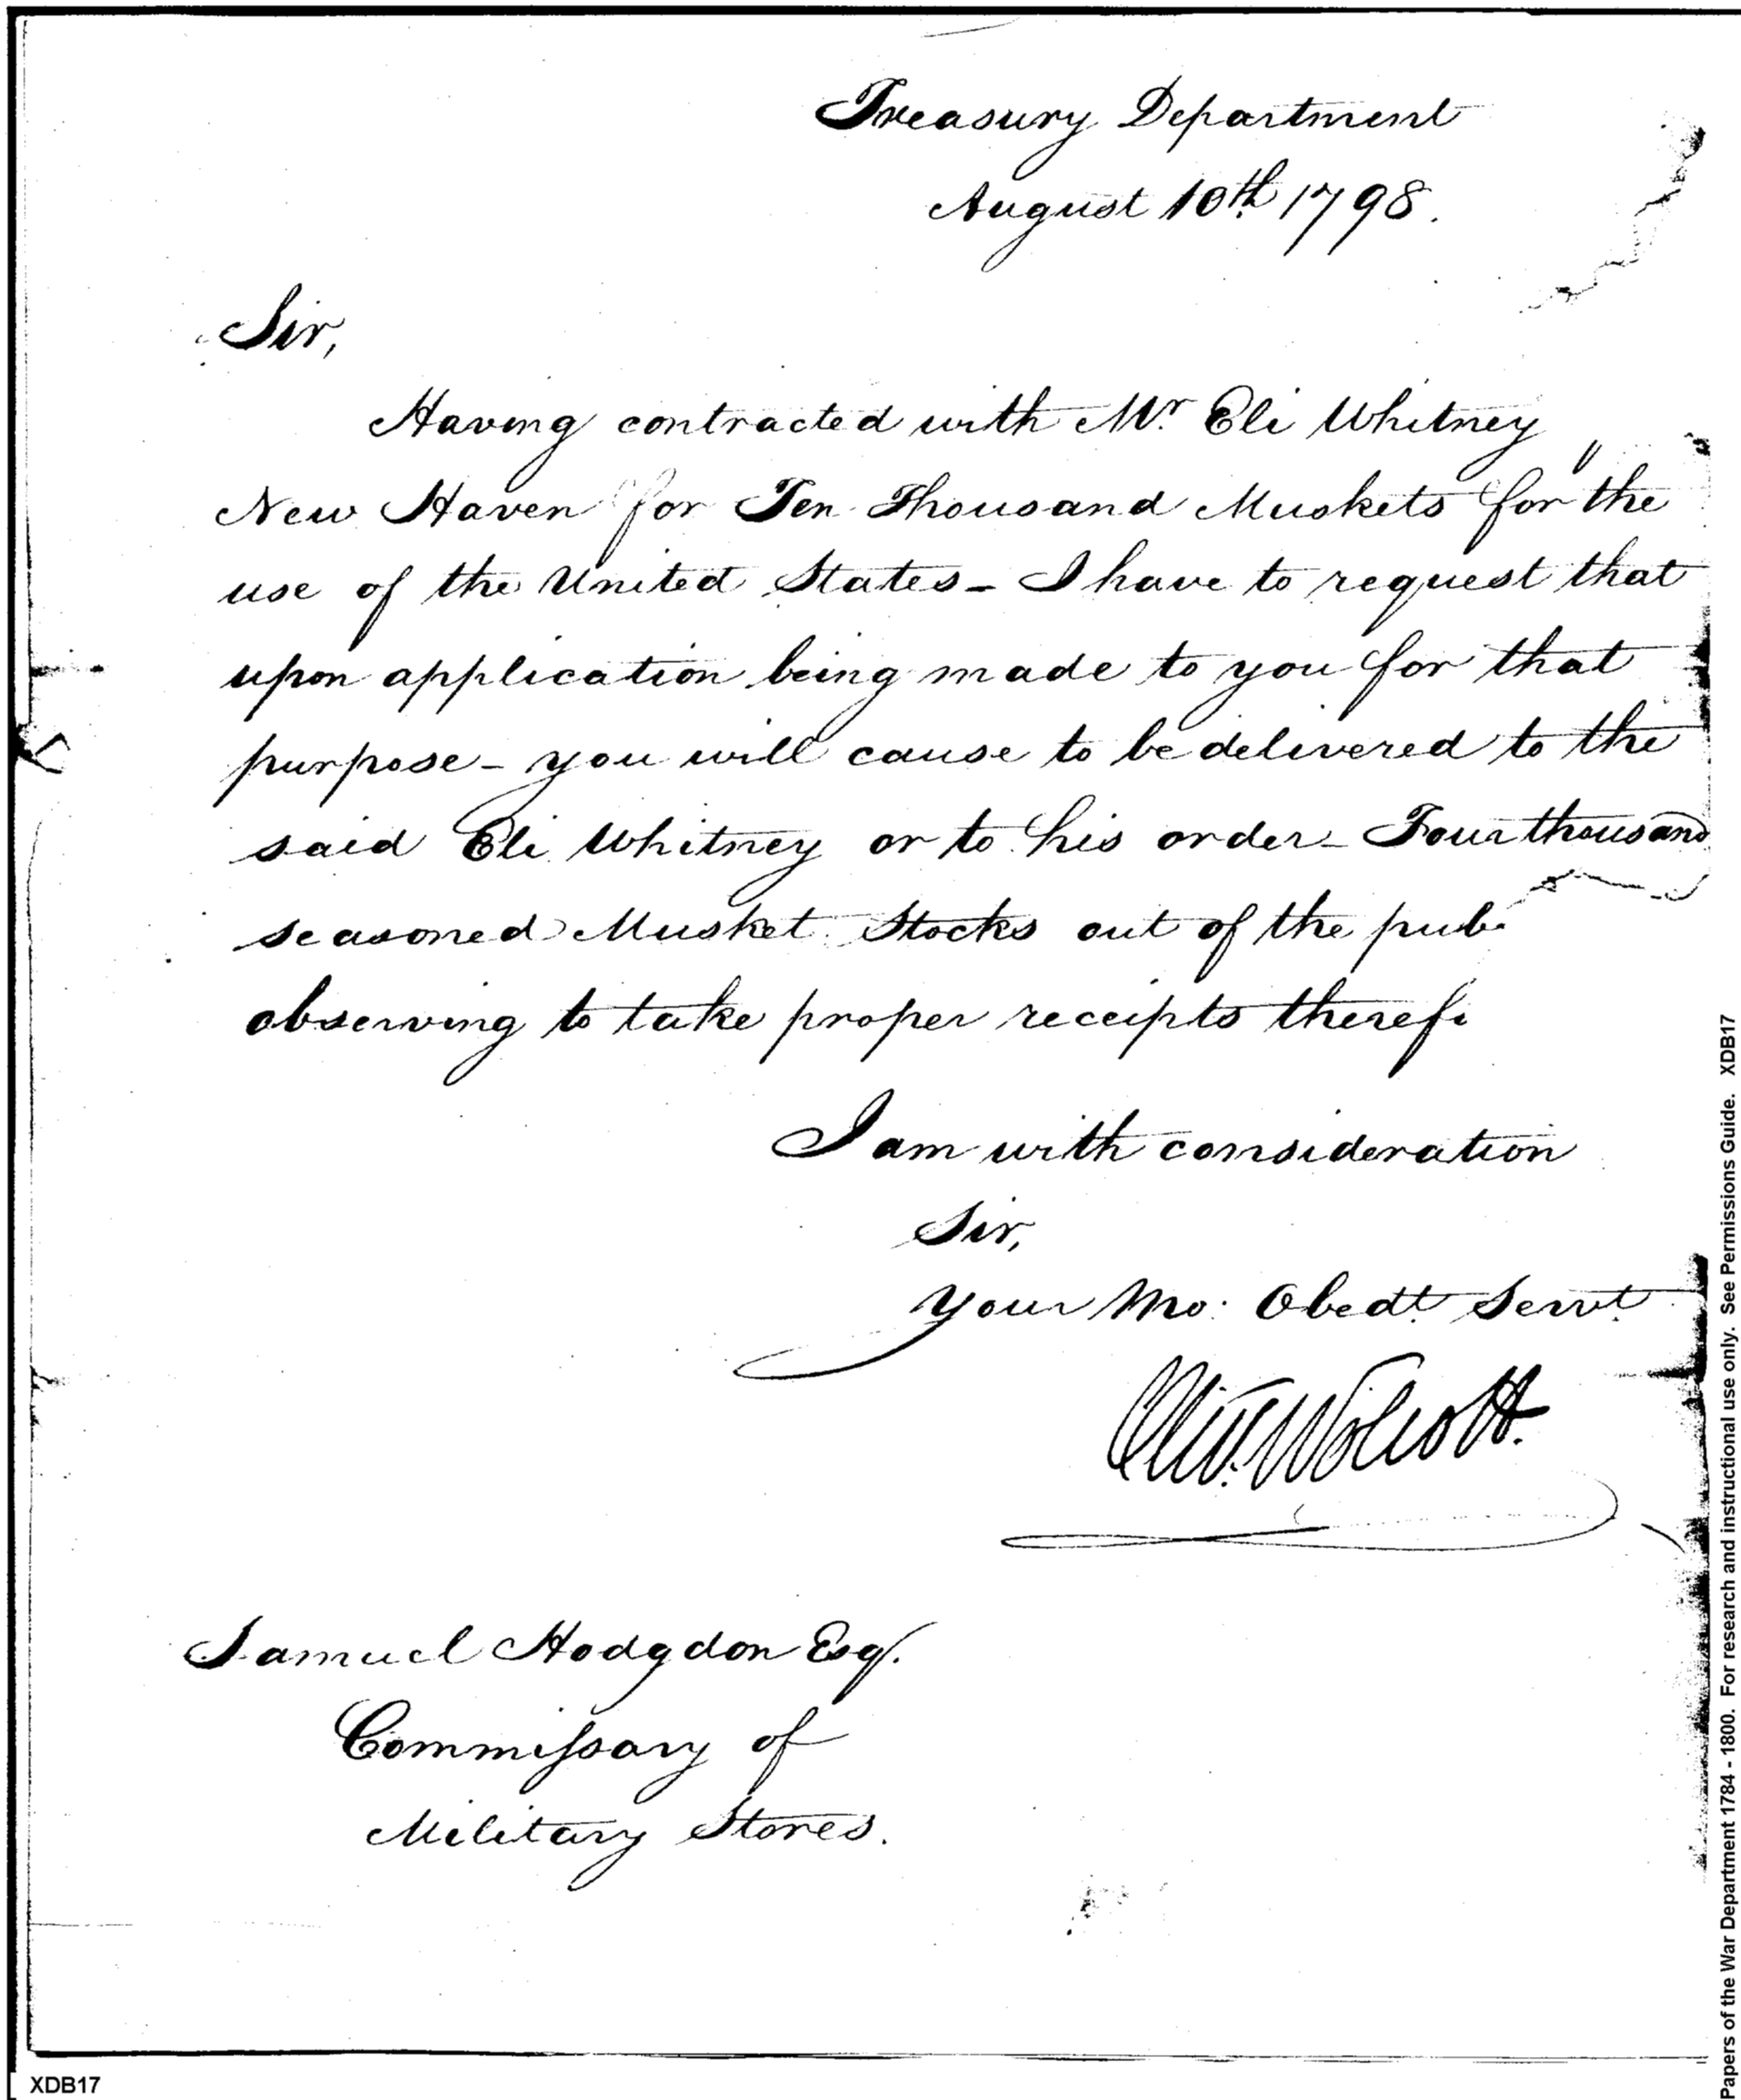 Treasury Department
August 10th 1798.
Sir,
Having contracted with Mr. Eli Whitney
New Haven for Ten Thousand Muskets for the
use of the United States - I have to request that
upon application being made to you for that
purpose - you will cause to be delivered to the
said Eli Whitney or to his order - Four thousand
seasoned Musket Stocks out of the pub
observing to take proper receipts theref
I am with consideration
Sir,
Your Mo: Obedt. Servt.
Oliv. Wolcott.
Samuel Hodgdon Esq.
Commissary of
Military Stores.
XDB17
Papers of the War Department 1784 - 1800. For research and instructional use only. See Permissions Guide. XDB17